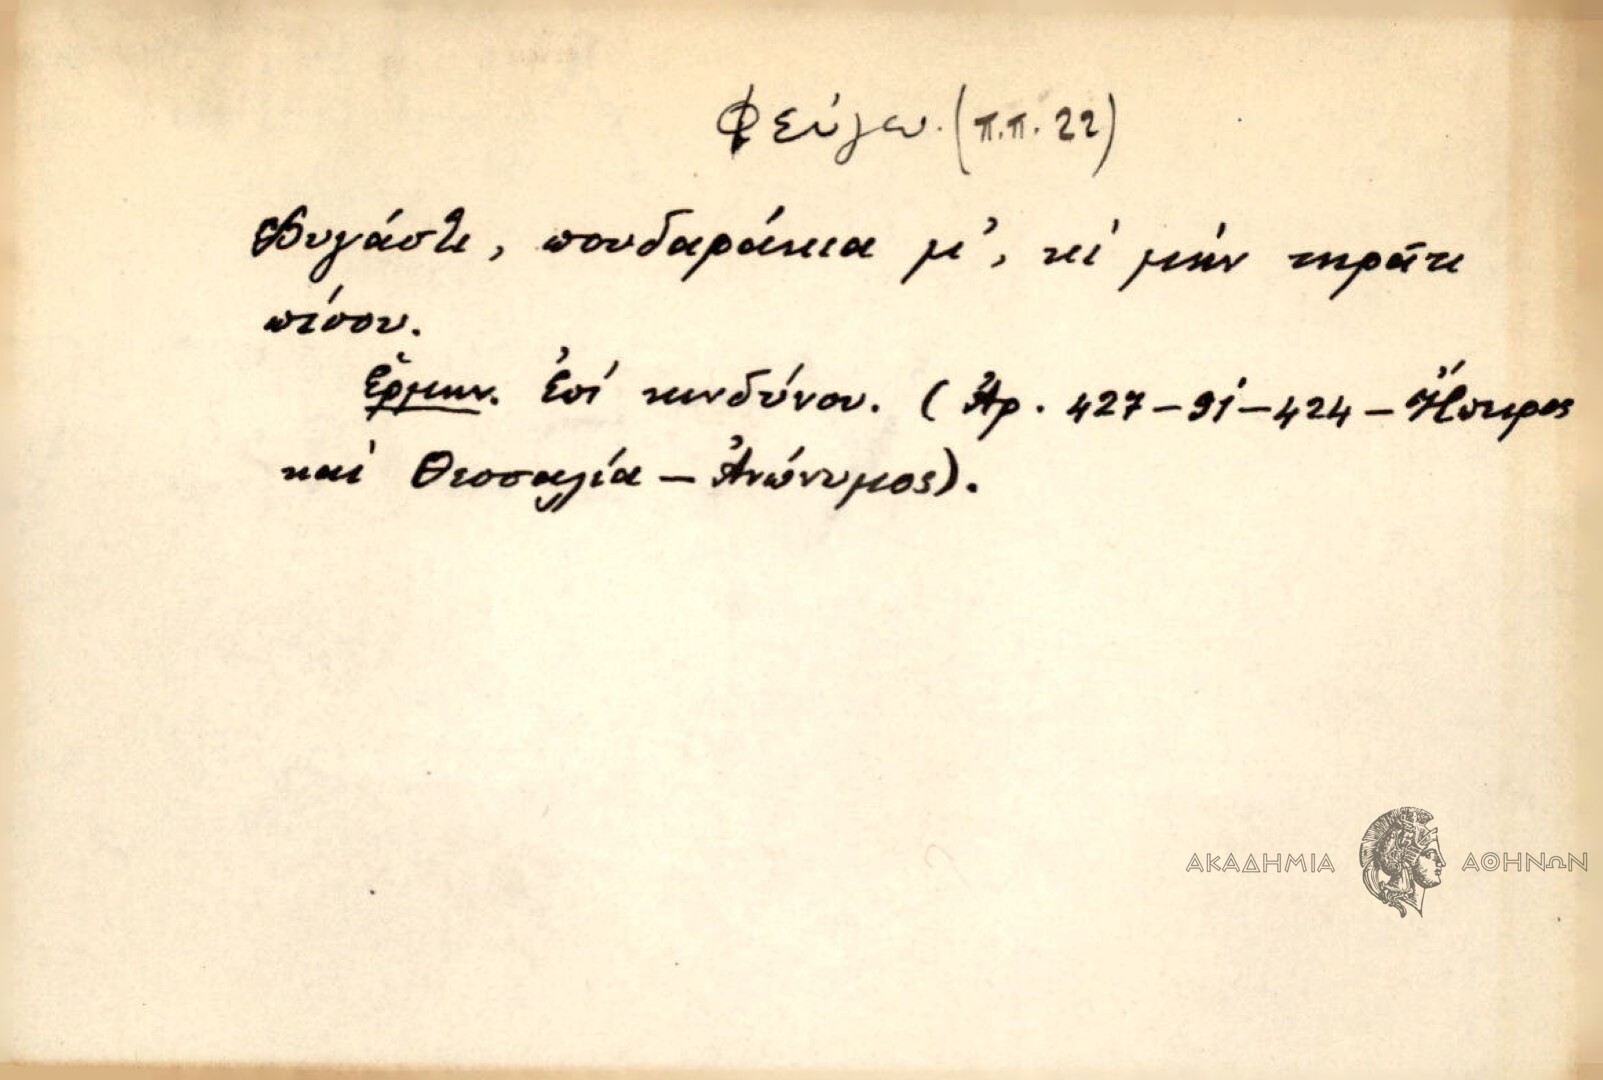 Φεύγω. (π.π. 22)
Φυγάστε, πουδαράκια μ', κὶ μὴν τηρᾶτε
πίσου.
Ἑρμην. Ἐπὶ κινδύνου. (Ἀρ. 427-91-424-Ἤπειρος
καὶ Θεσσαλία - Ἀνώνυμος).
ΑΚΑΔΗΜΙΑ ΑΘΗΝΩΝ